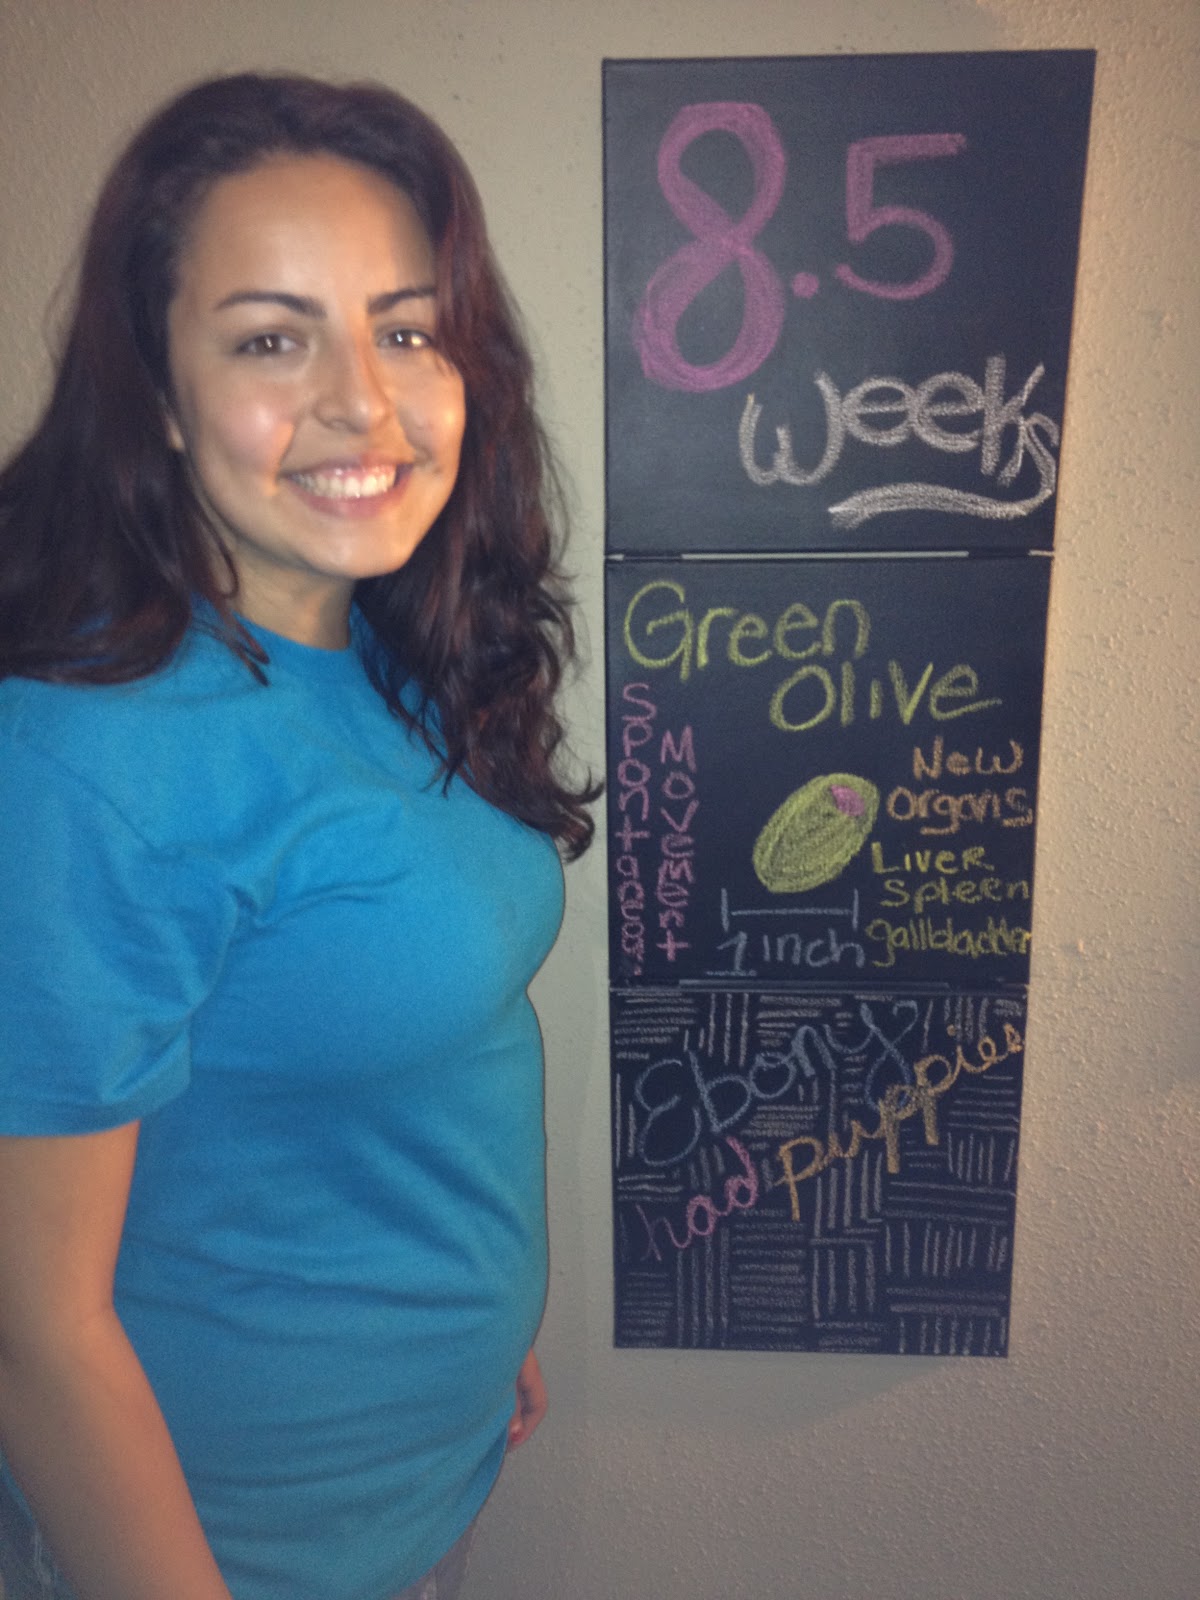 8.5
weeks
Green
Olive
Spontaneous
Movement
New
Organs
Liver
Spleen
gallbladder
1 inch
Ebony
had puppies